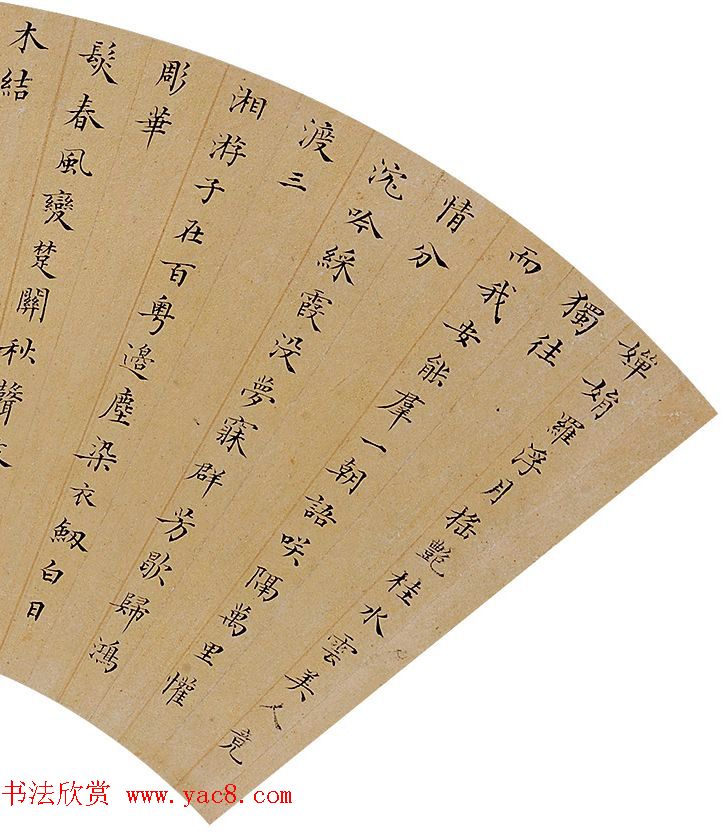 嬋娟羅浮月搖艷桂水雲美人竟
獨往
而我安能羣一朝語咲隔萬里懽
情分
沉吟綵霞没夢寐群芳歇歸鴻
渡三
湘游子在百粵邊塵染衣釼白日
彫華
髮春風變楚關秋聲
木結
书法欣赏 www.yac8.com